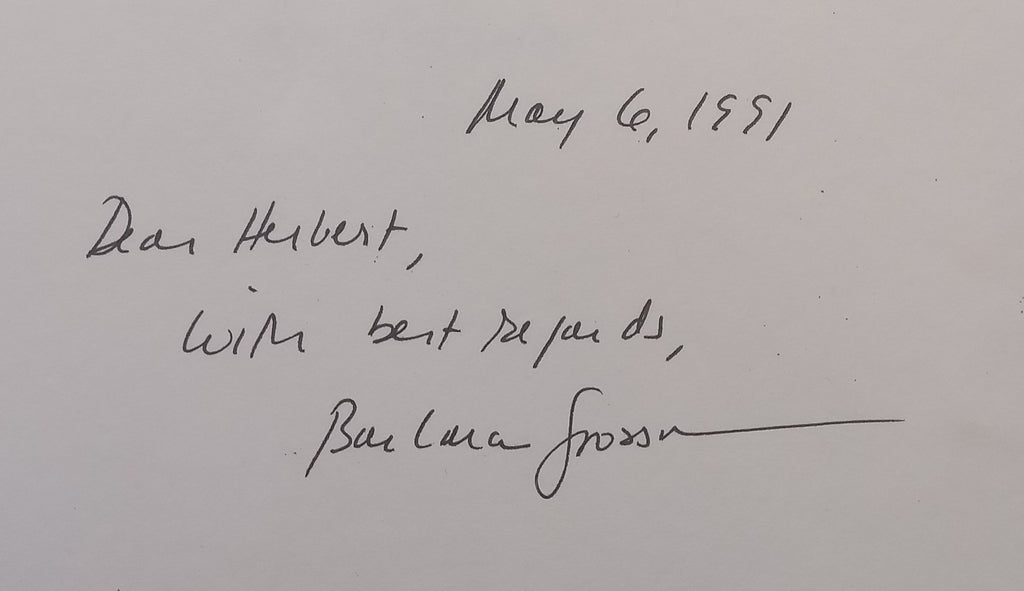 May 6, 1991
Dear Herbert,
With best regards,
Barbara